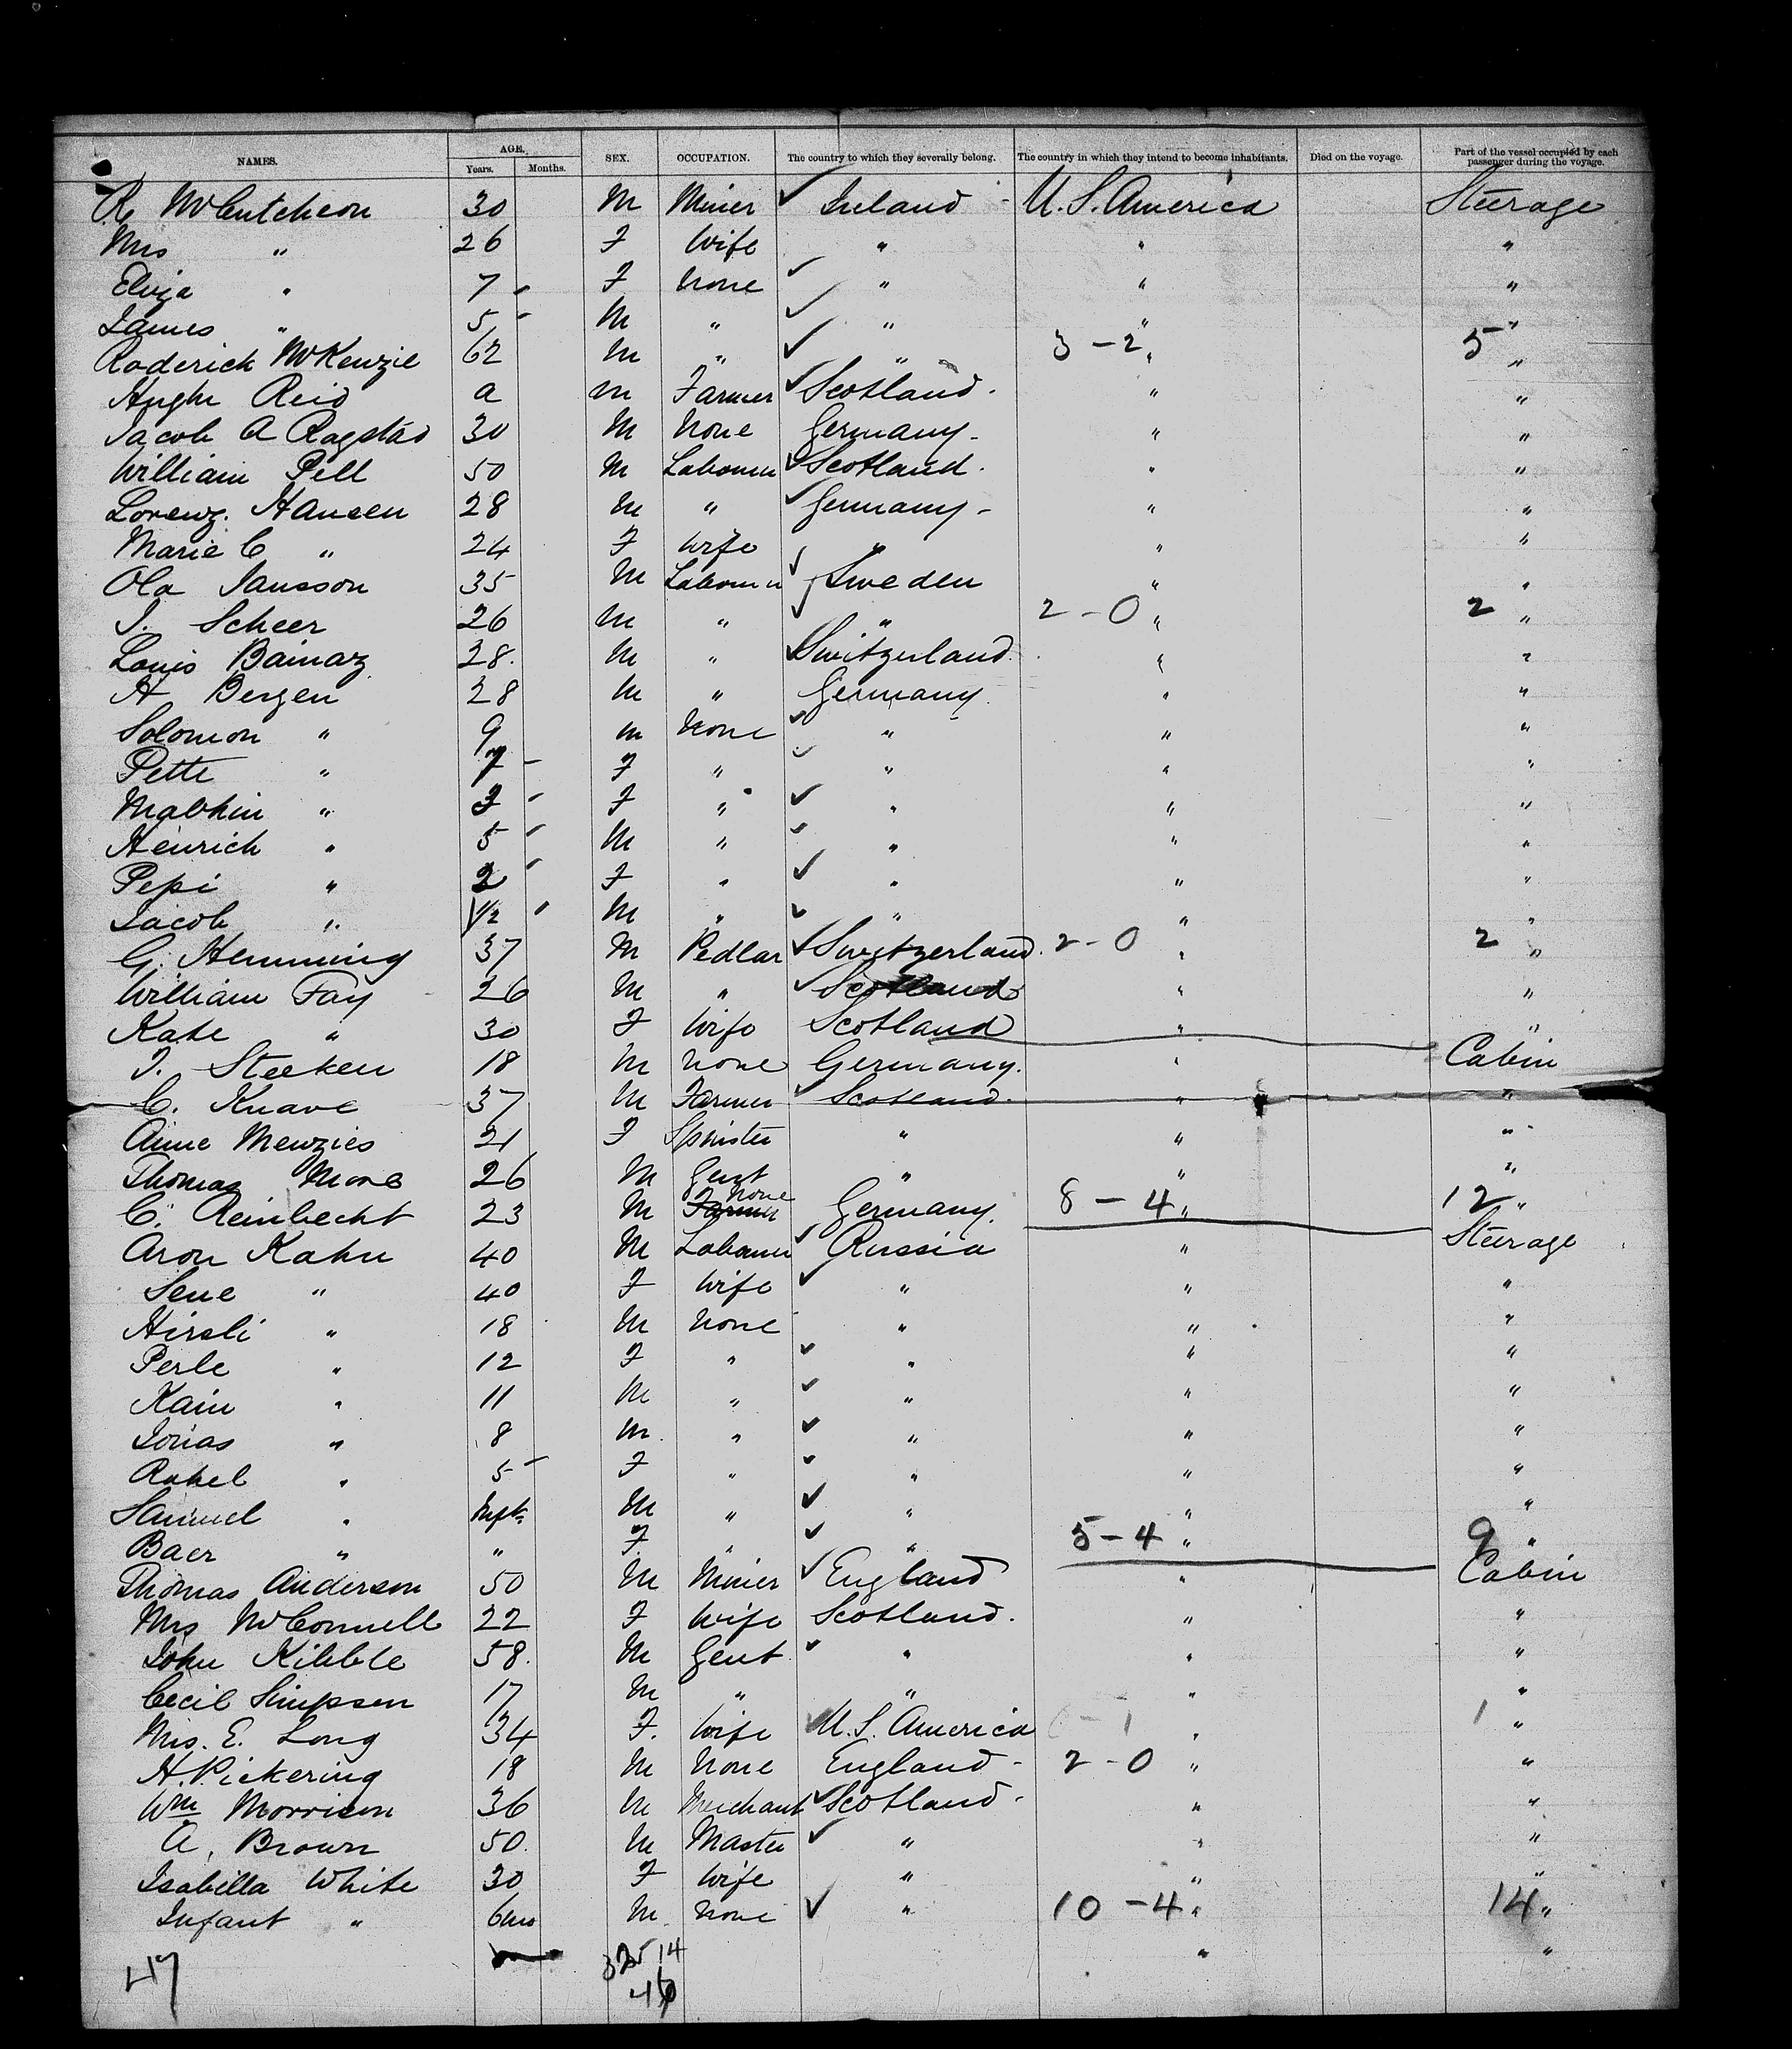 NAMES. AGE. Years. Months. SEX. OCCUPATION. The country to which they severally belong. The country in which they intend to become inhabitants. Died on the voyage. Part of the vessel occupied by each passenger during the voyage.
R McCutcheon 30 M Miner ✓ Ireland U.S. America Steerage
Mrs " 26 F Wife " " "
Eliza " 7 F None ✓ " " "
James " 5 M " ✓ " " "
Roderick McKenzie 62 M " ✓ " 3-2 " 5 "
Hugh Reid a M Farmer ✓ Scotland. " "
Jacob A Ragstad 30 M None Germany " "
William Pell 50 M Labourer ✓ Scotland. " "
Lorenz. Hansen 28 M " ✓ Germany " "
Marie C " 24 F Wife " " "
Ola Jansson 35 M Labourer ✓ Sweden " "
J. Scheer 26 M " ✓ " 2-0 " 2 "
Louis Bainaz 28. M " ✓ Switzerland. " "
A Bergen 28 M " Germany " "
Solomon " 9 M None ✓ " " "
Pette " 7 F " ✓ " " "
" 3 F " ✓ " " "
Heinrich " 5 M " ✓ " " "
Pepi " 2 F " ✓ " " "
Jacob " 1/2 M " ✓ " " "
G. Hemming 37 M Pedlar ✓ Switzerland. 2-0 " 2 "
William Fay 26 M " ✓ Scotland " "
Kate " 30 F Wife Scotland " "
J. Steeken 18 M None Germany. " Cabin
C. Knave 37 M Farmer ✓ Scotland. " "
Anne Menzies 21 F Spinster " " "
Thomas More 26 M Gent " " "
C. Reinbecht 23 M Farmer None Germany. 8-4 " 12 "
Aron Kahn 40 M Labourer ✓ Russia " Steerage
Sene " 40 F Wife ✓ " " "
Hirsli " 18 M None " " "
Perle " 12 F " ✓ " " "
Kain " 11 M " ✓ " " "
Jonas " 8 M " ✓ " " "
Rahel " 5 F " ✓ " " "
Samuel " Inft. M " ✓ " " "
Baer " " F. " ✓ " 5-4 " 9 "
Thomas Anderson 50 M Miner ✓ England " Cabin
Mrs McConnell 22 F Wife Scotland. " "
John Kibble 58. M Gent ✓ " " "
Cecil Simpson 17 M " " " "
Mrs. E. Long 34 F. Wife ✓ U.S. America 0-1 " 1 "
H. Pickering 18 M None England 2-0 " "
Wm Morrison 36 M Merchant ✓ Scotland " "
A. Brown 50. M Master ✓ " " "
Isabella White 30 F Wife " " "
Infant " 6ms M. None ✓ " 10-4 " 14 "
47 32 14 " "
46